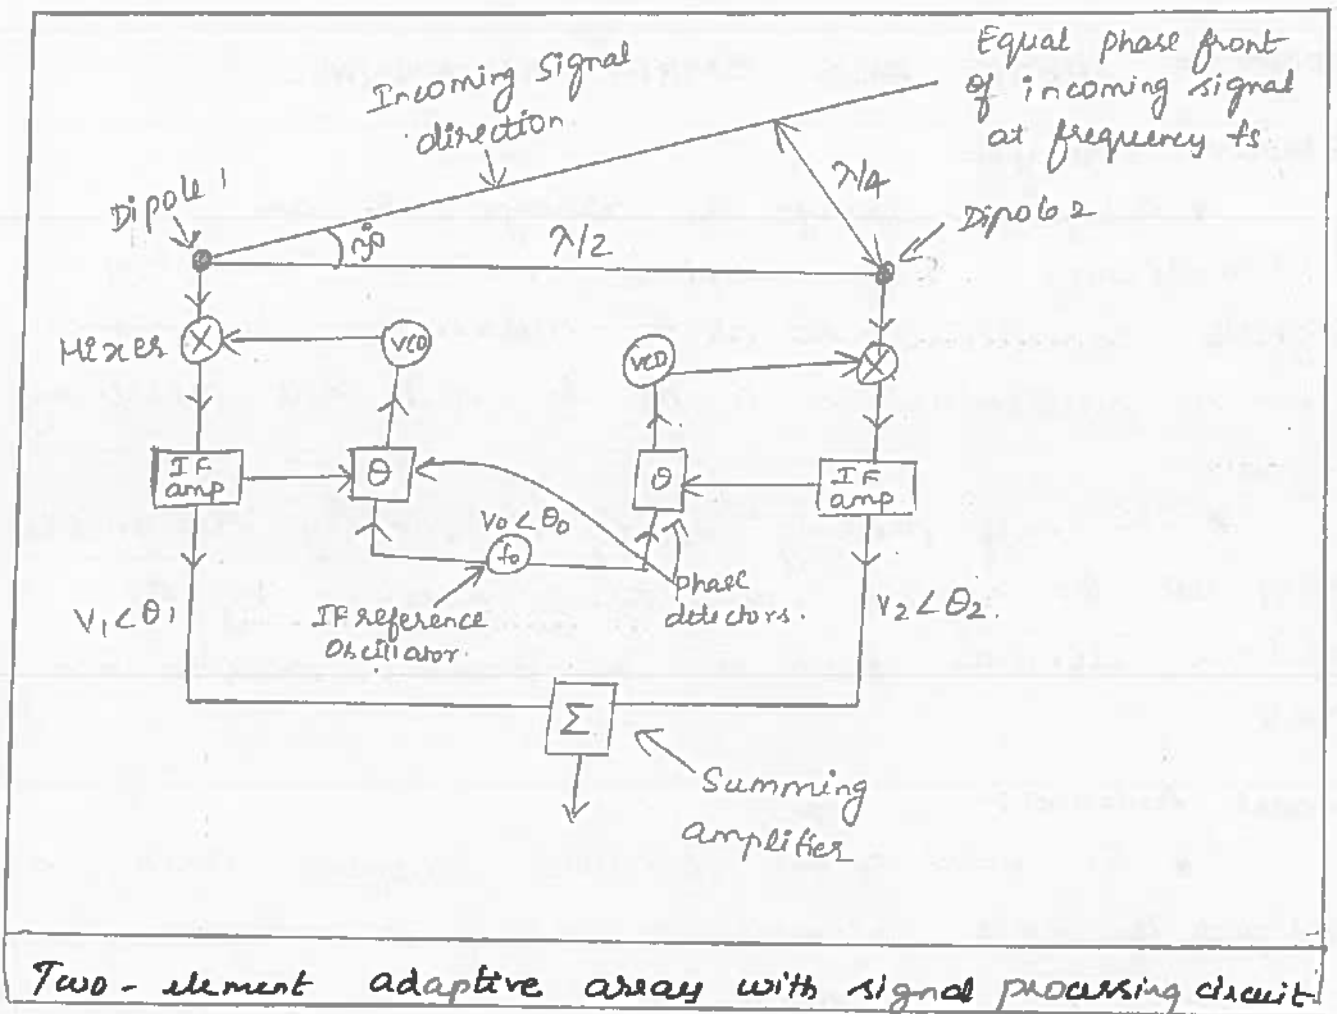 Incoming signal
direction
Equal phase front
of incoming signal
at frequency fs
Dipole 1
λ/4
Dipole 2
λ/2
Mixer
X
VCO
VCO
X
IF
amp
θ
θ
IF
amp
V0 < θ0
f0
IF reference
Oscillator.
phase
detectors.
V1 < θ1
V2 < θ2.
Σ
Summing
amplifier
Two-element adaptive array with signal processing circuit